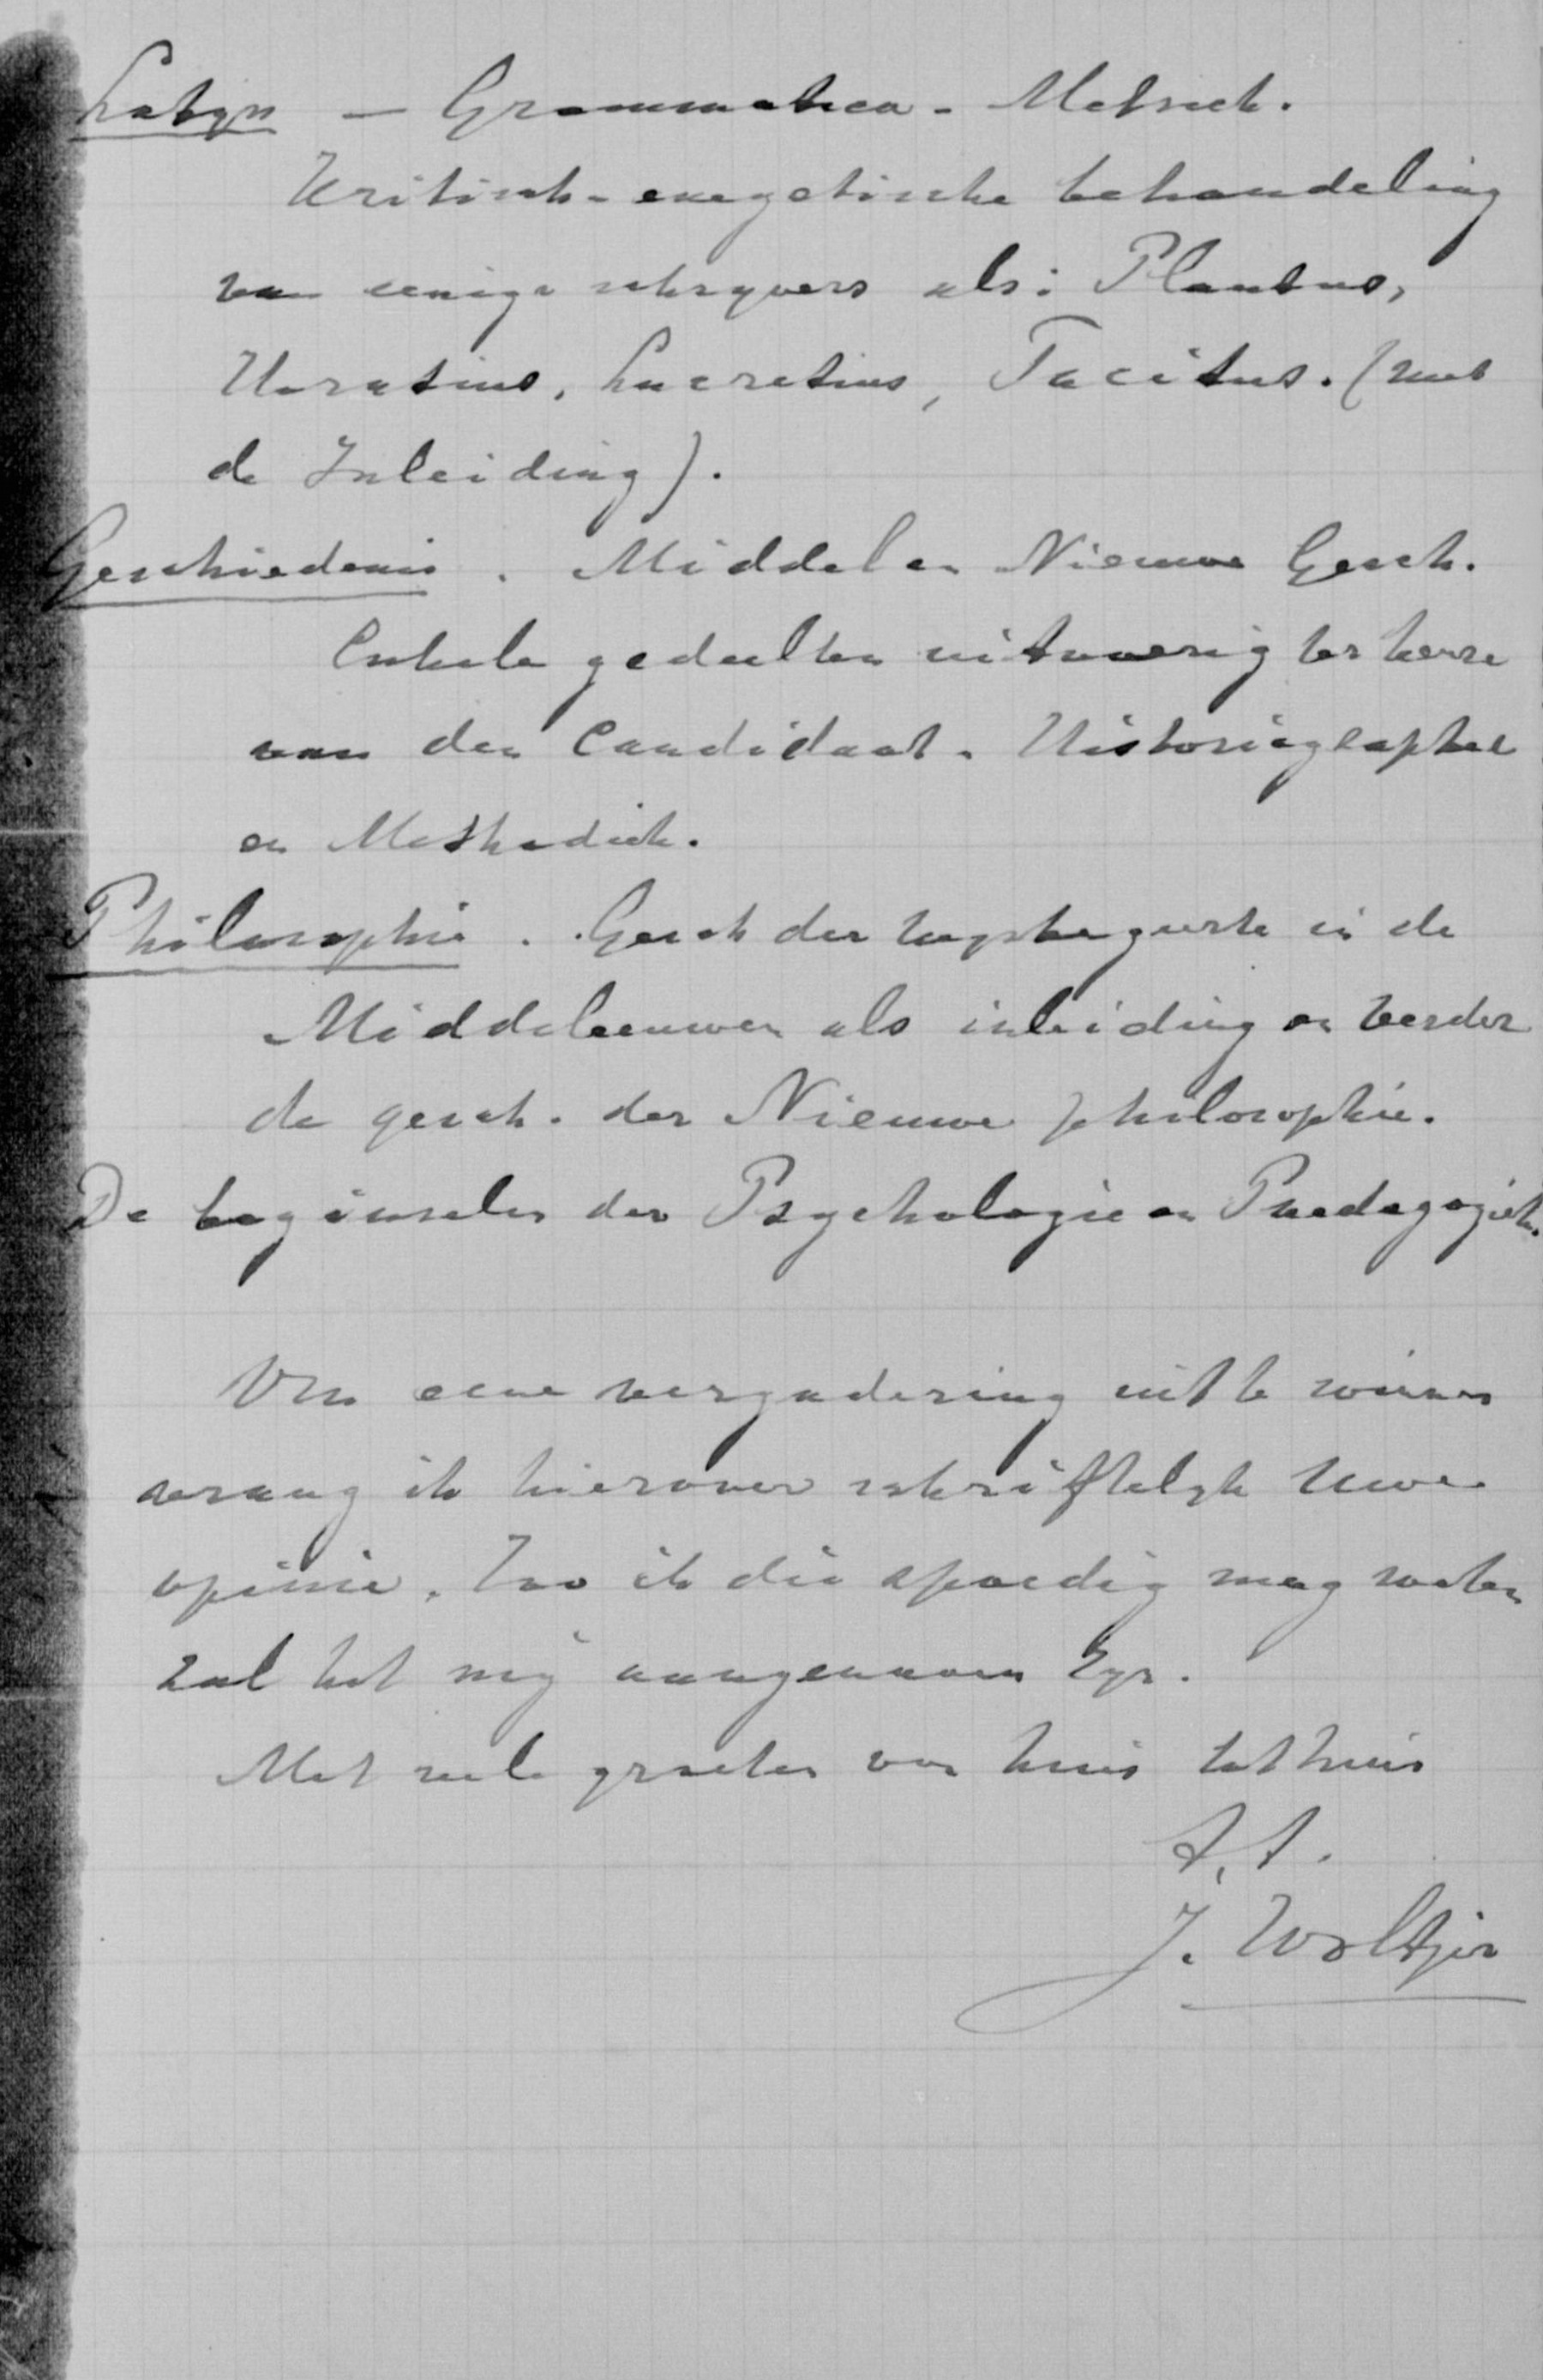 Latyn — Grammatica - Metriek.
Kritisch-exegetische behandeling
van eenige schryvers als: Plautus,
Horatius, Lucretius, Tacitus. (met
de Inleiding).
Geschiedenis. Middel en Nieuwe Gesch.
Enkele gedeelten uitvoerig ter keuze
van den Candidaat. Historiographie
en Methodiek.
Philosophie. Gesch der wysbegeerte in de
Middeleeuwen als inleiding en verder
de gesch. der Nieuwe philosophie.
De beginselen der Psychologie en Paedagogiek.
Om eene vergadering uit te winnen
vraag ik hierover schriftelyk Uwe
opinie. Zoo ik die spoedig mag weten
zal het mij aangenaam zyn.
Met vele groeten van huis tot huis
t.t.
J. Woltjer